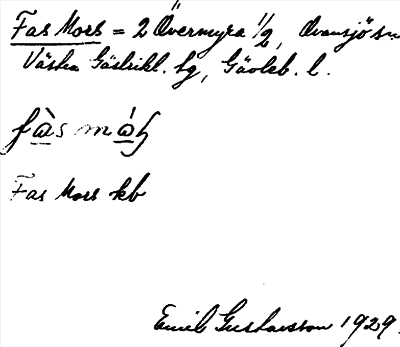 Fas Mors = 2 Övermyra 1/2, Ovansjö sn
Västra Gästrikl. tg, Gävleb. l.
fàs mớ
Fas Mors kb
Emil Gustavsson 1929.